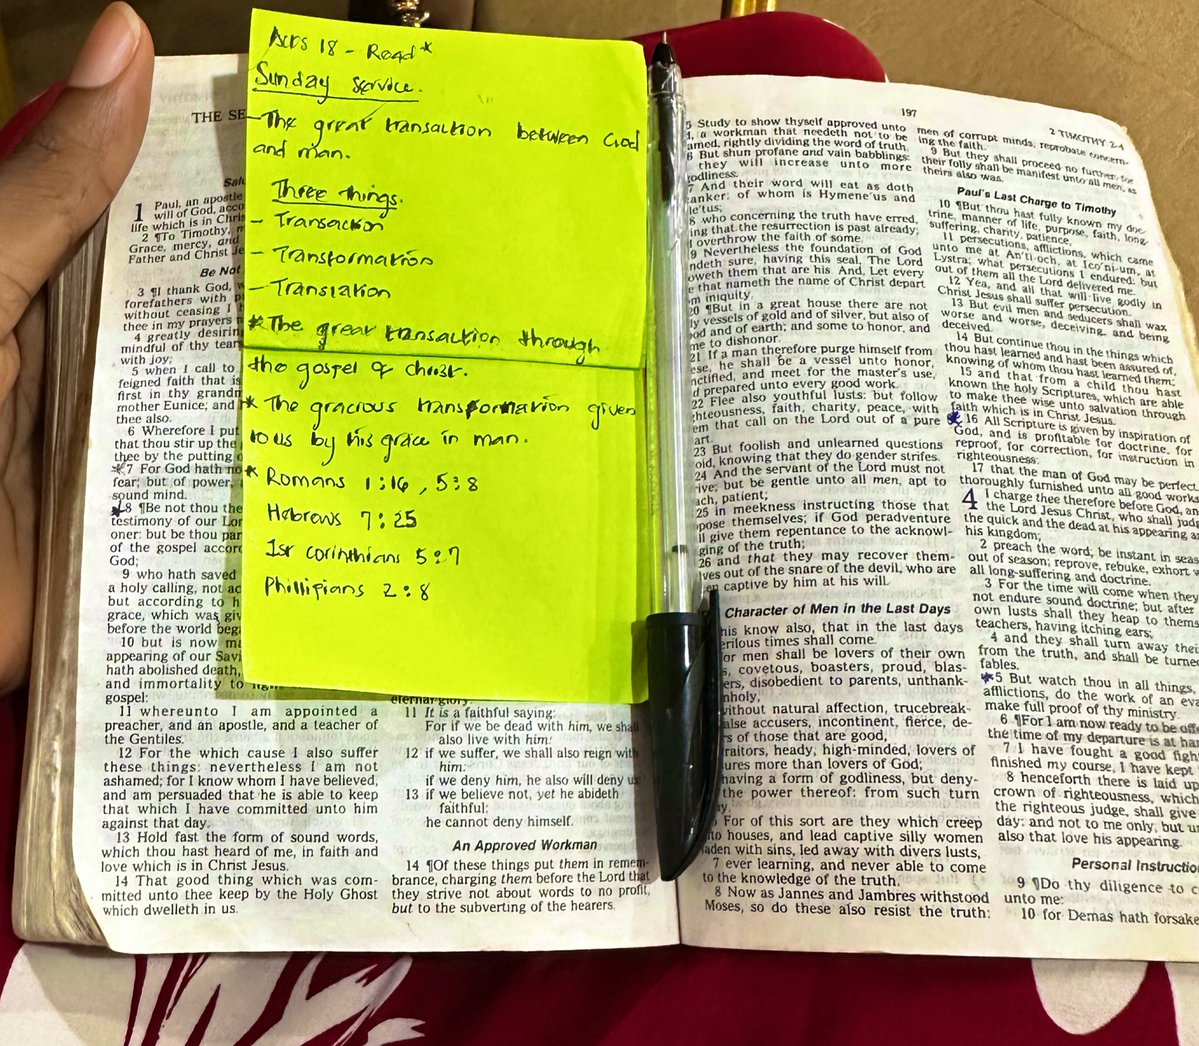 Acts 18 - Read*
Sunday service.
- The great transaction between God
and man.
Three things.
- Transaction
- Transformation
- Translation
* The great transaction through
the gospel of christ.
* The gracious transformation given
to us by his grace in man.
* Romans 1:16, 5:8
Hebrews 7:25
1st corinthians 5:7
Phillipians 2:8
THE SE
1 Paul, an apostle
will of God,
life which is in Chris
2 ¶To Timothy,
Grace, mercy, and
Father and Christ
Be Not
3 ¶I thank God,
forefathers with
without ceasing I
thee in my prayers
4 greatly desiring
mindful of thy tear
with joy;
5 when I call to
feigned faith that is
first in thy grand
mother Eunice; and
thee also.
6 Wherefore I put
that thou stir up the
thee by the putting
*7 For God hath no
fear; but of power,
sound mind.
8 ¶Be not thou the
testimony of our Lor
oner: but be thou par
of the gospel accor
God;
9 who hath saved
a holy calling, not ac
but according to h
grace, which was giv
before the world bega
10 but is now ma
appearing of our Savi
hath abolished death,
and immortality to
gospel:
11 whereunto I am appointed a
preacher, and an apostle, and a teacher of
the Gentiles.
12 For the which cause I also suffer
these things: nevertheless I am not
ashamed; for I know whom I have believed,
and am persuaded that he is able to keep
that which I have committed unto him
against that day.
13 Hold fast the form of sound words,
which thou hast heard of me, in faith and
love which is in Christ Jesus.
14 That good thing which was com-
mitted unto thee keep by the Holy Ghost
which dwelleth in us.
eternal glory.
11 It is a faithful saying:
For if we be dead with him, we shall
also live with him:
12 if we suffer, we shall also reign with
him:
if we deny him, he also will deny us:
13 if we believe not, yet he abideth
faithful:
he cannot deny himself.
An Approved Workman
14 ¶Of these things put them in remem-
brance, charging them before the Lord that
they strive not about words to no profit,
but to the subverting of the hearers.
197
2 TIMOTHY 2-4
5 Study to show thyself approved unto
d, a workman that needeth not to be
amed, rightly dividing the word of truth.
6 But shun profane and vain babblings:
they will increase unto more
godliness.
7 And their word will eat as doth
anker: of whom is Hymene'us and
le'tus;
8 who concerning the truth have erred,
ing that the resurrection is past already;
d overthrow the faith of some.
9 Nevertheless the foundation of God
ndeth sure, having this seal, The Lord
oweth them that are his. And, Let every
e that nameth the name of Christ depart
m iniquity.
20 ¶But in a great house there are not
ly vessels of gold and of silver, but also of
ood and of earth; and some to honor, and
me to dishonor.
21 If a man therefore purge himself from
ese, he shall be a vessel unto honor,
nctified, and meet for the master's use,
d prepared unto every good work.
22 Flee also youthful lusts: but follow
hteousness, faith, charity, peace, with
em that call on the Lord out of a pure
art.
23 But foolish and unlearned questions
oid, knowing that they do gender strifes.
24 And the servant of the Lord must not
rive; but be gentle unto all men, apt to
ach, patient;
25 in meekness instructing those that
pose themselves; if God peradventure
ll give them repentance to the acknowl-
ging of the truth;
26 and that they may recover them-
lves out of the snare of the devil, who are
en captive by him at his will.
Character of Men in the Last Days
his know also, that in the last days
erilous times shall come.
or men shall be lovers of their own
s, covetous, boasters, proud, blas-
ers, disobedient to parents, unthank-
nholy,
without natural affection, trucebreak-
alse accusers, incontinent, fierce, de-
rs of those that are good,
raitors, heady, high-minded, lovers of
ures more than lovers of God;
having a form of godliness, but deny-
the power thereof: from such turn
y.
For of this sort are they which creep
to houses, and lead captive silly women
laden with sins, led away with divers lusts,
7 ever learning, and never able to come
to the knowledge of the truth.
8 Now as Jannes and Jambres withstood
Moses, so do these also resist the truth:
men of corrupt minds, reprobate concern-
ing the faith.
9 But they shall proceed no further: for
their folly shall be manifest unto all men, as
theirs also was.
Paul's Last Charge to Timothy
10 ¶But thou hast fully known my doc-
trine, manner of life, purpose, faith, long-
suffering, charity, patience,
11 persecutions, afflictions, which came
unto me at An'ti-och, at Ico'ni-um, at
Lystra; what persecutions I endured: but
out of them all the Lord delivered me.
12 Yea, and all that will live godly in
Christ Jesus shall suffer persecution.
13 But evil men and seducers shall wax
worse and worse, deceiving, and being
deceived.
14 But continue thou in the things which
thou hast learned and hast been assured of,
knowing of whom thou hast learned them;
15 and that from a child thou hast
known the holy Scriptures, which are able
to make thee wise unto salvation through
faith which is in Christ Jesus.
*16 All Scripture is given by inspiration of
God, and is profitable for doctrine, for
reproof, for correction, for instruction in
righteousness:
17 that the man of God may be perfect,
thoroughly furnished unto all good works
4 I charge thee therefore before God, an
the Lord Jesus Christ, who shall judg
the quick and the dead at his appearing a
his kingdom;
2 preach the word; be instant in seas
out of season; reprove, rebuke, exhort
all long-suffering and doctrine.
3 For the time will come when they
not endure sound doctrine; but after
own lusts shall they heap to thems
teachers, having itching ears;
4 and they shall turn away thei
from the truth, and shall be turne
fables.
*5 But watch thou in all things,
afflictions, do the work of an eva
make full proof of thy ministry
6 ¶For I am now ready to be offe
the time of my departure is at han
7 I have fought a good figh
finished my course, I have kept
8 henceforth there is laid up
crown of righteousness, which
the righteous judge, shall give
day: and not to me only, but u
also that love his appearing.
Personal Instructio
9 ¶Do thy diligence to c
unto me:
10 for Demas hath forsake